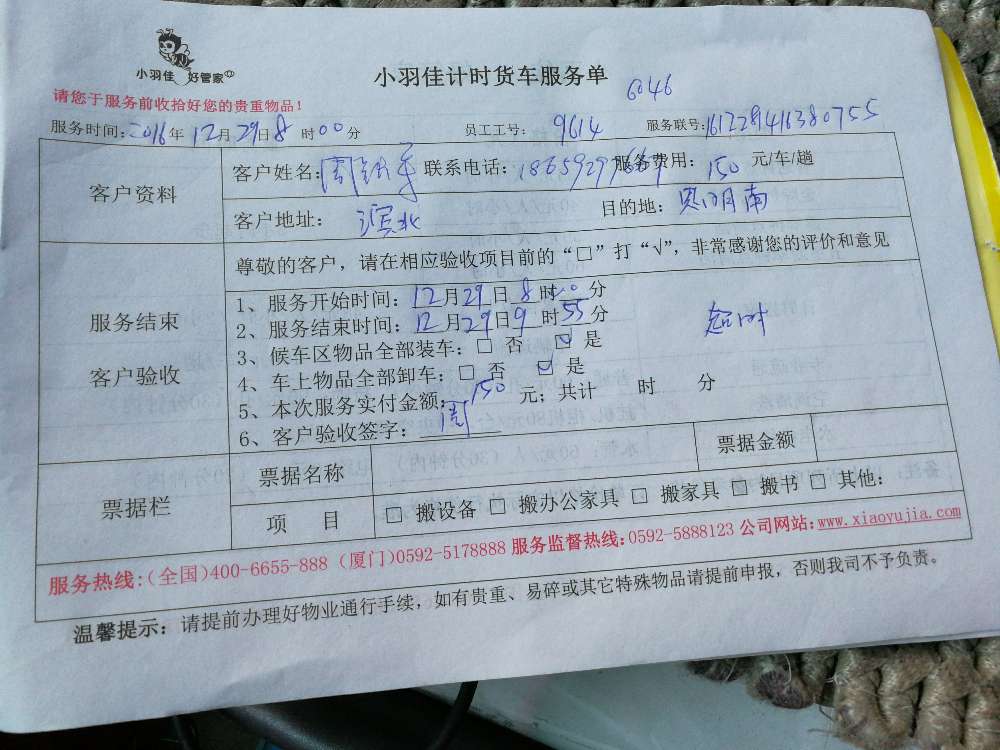 小羽佳 好管家
小羽佳计时货车服务单
6046
请您于服务前收拾好您的贵重物品！
服务时间：2016年12月29日8时00分 员工工号：9614 服务联号：161229416380755
客户资料
客户姓名：周 联系电话： 服务费用：150元/车/趟
客户地址：滨北 目的地：思明南
服务结束
客户验收
尊敬的客户，请在相应验收项目前的“□”打“√”，非常感谢您的评价和意见
1、服务开始时间：12月29日8时分
2、服务结束时间：12月29日9时55分
超时
3、候车区物品全部装车：□ 否 ☑ 是
4、车上物品全部卸车：□ 否 ☑ 是
5、本次服务实付金额：150元；共计 时 分
6、客户验收签字：周
票据栏
票据名称 票据金额
项 目 □ 搬设备 □ 搬办公家具 □ 搬家具 □ 搬书 □ 其他：
服务热线：(全国)400-6655-888 (厦门)0592-5178888 服务监督热线：0592-5888123 公司网站：www.xiaoyujia.com
温馨提示：请提前办理好物业通行手续，如有贵重、易碎或其它特殊物品请提前申报，否则我司不予负责。